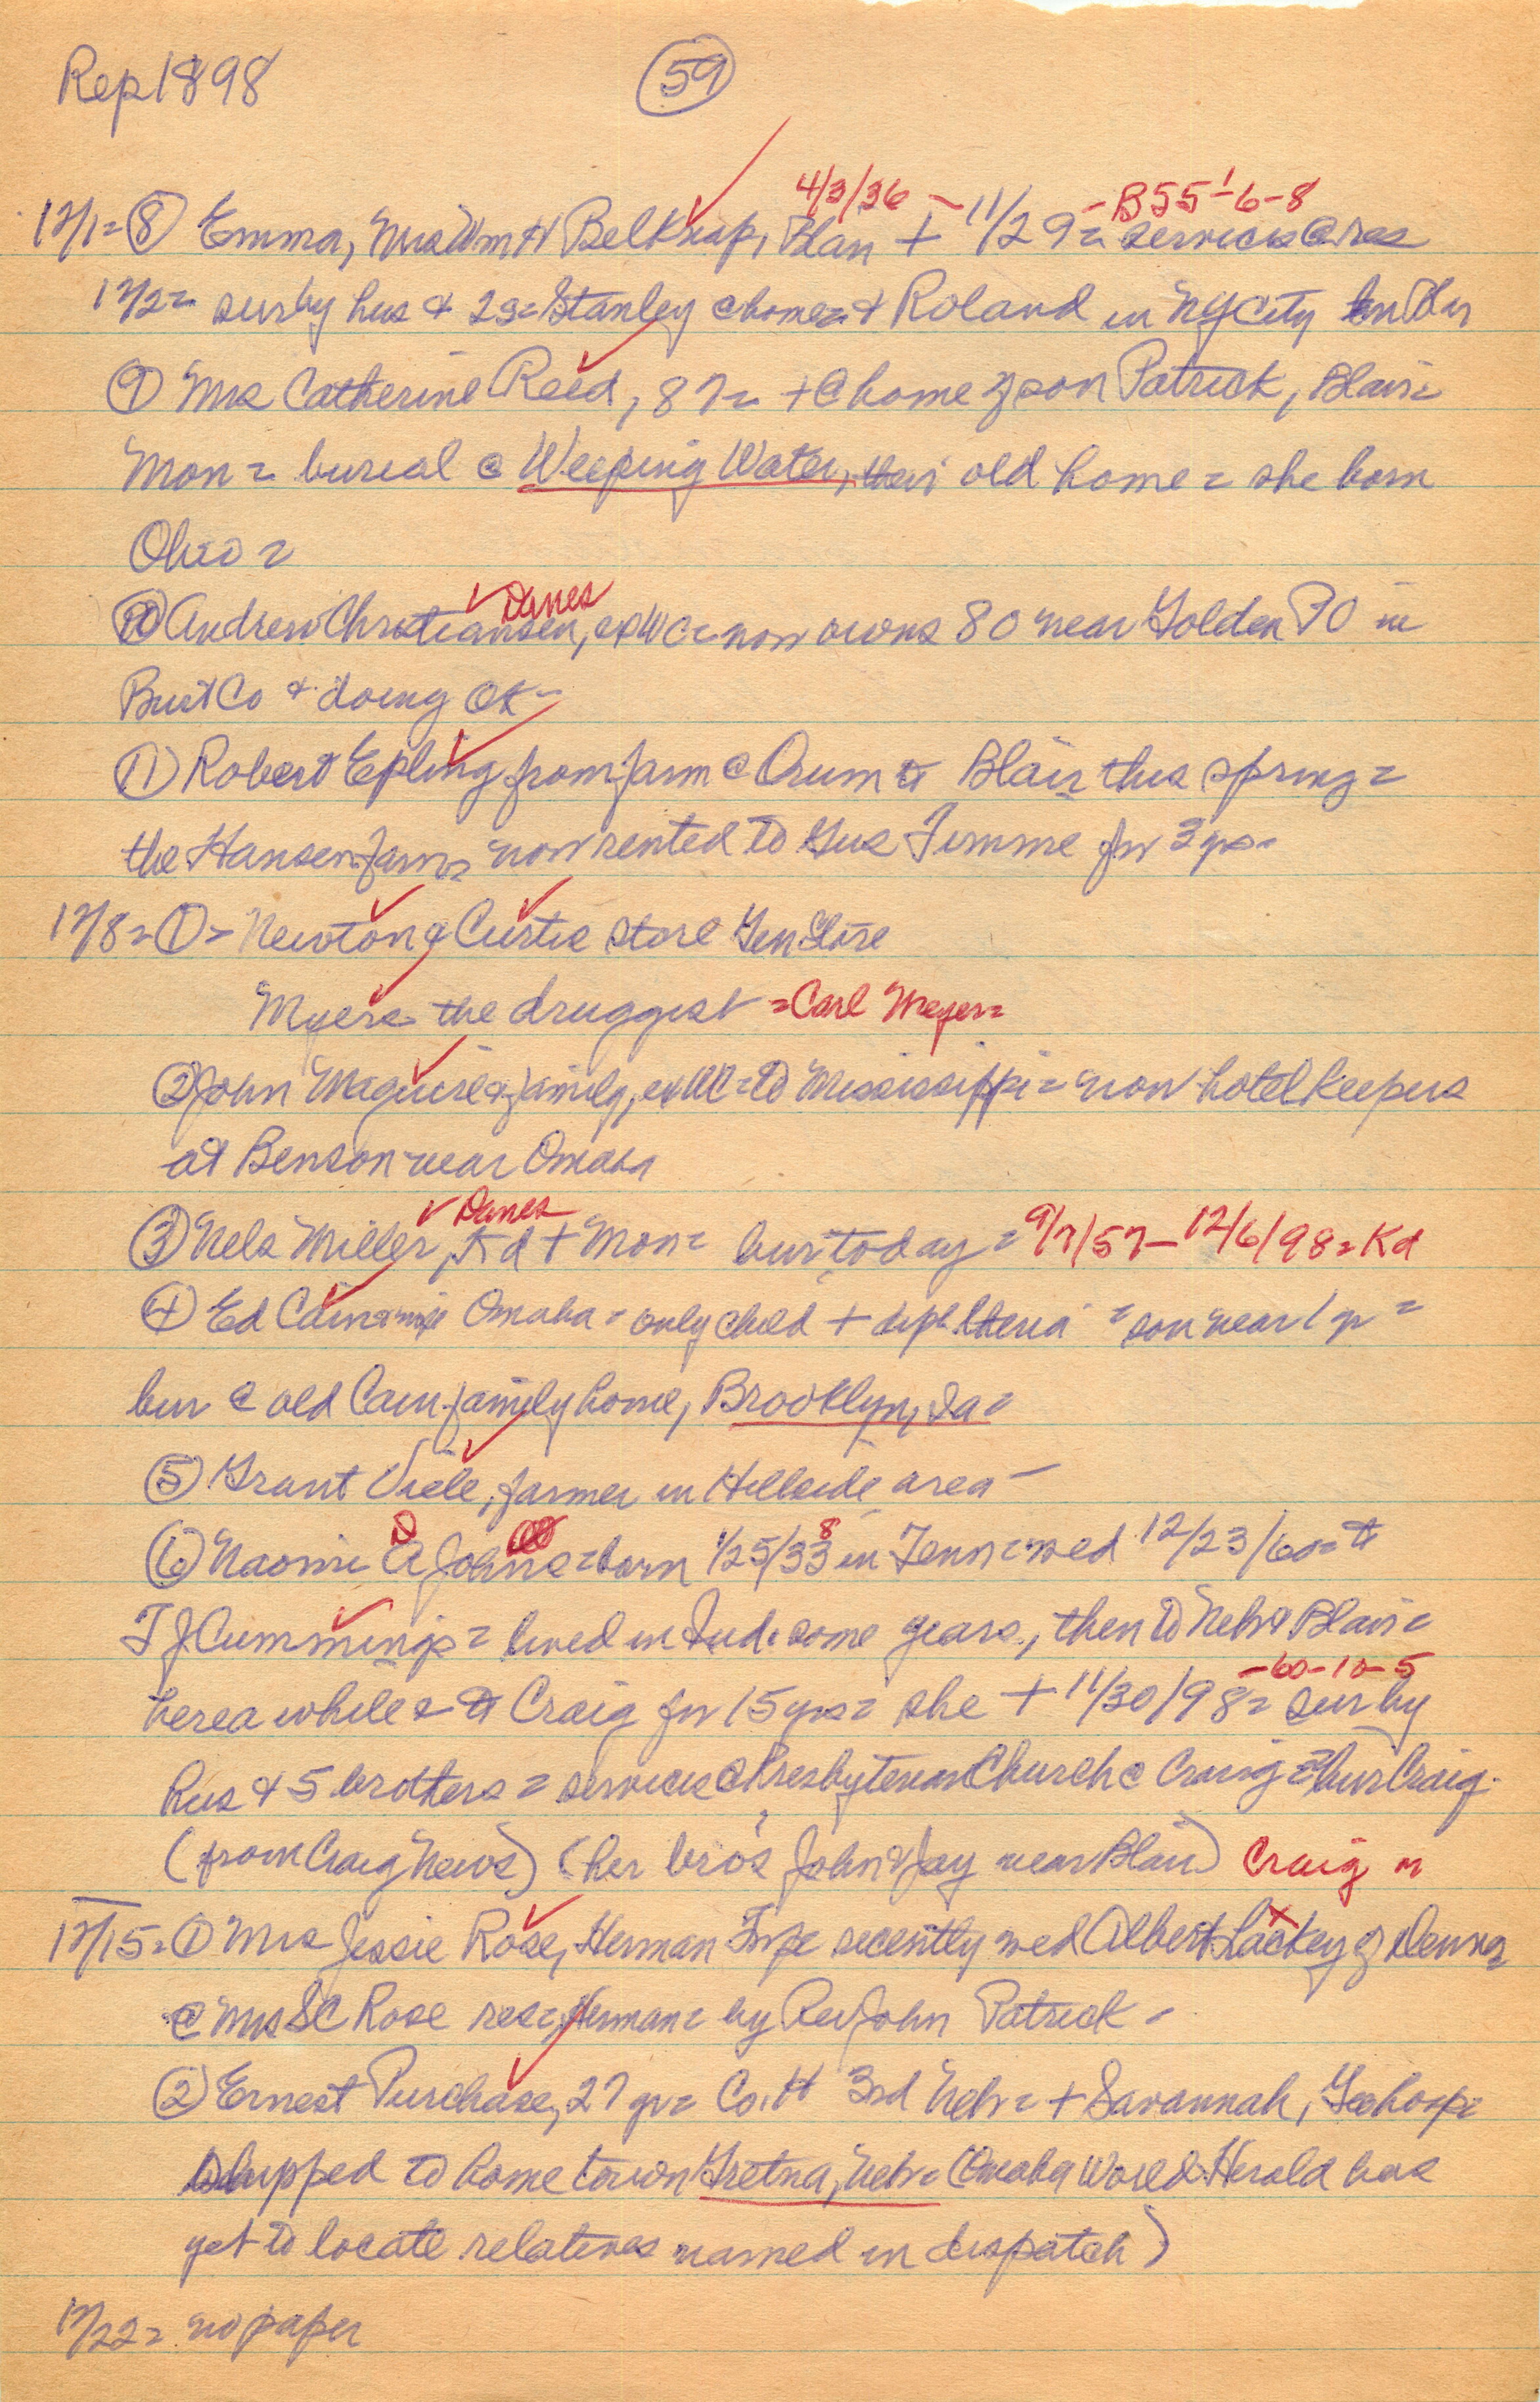 Rep 1898
59
4/3/36 - - B55-6-8
12/1= ⑧ Emma, Mrs Wm H Belknap, Blair + 11/29= services @ res
12/2= sur by hus & 2s= Stanley @ home= & Roland in NY City
⑨ Mrs Catherine Reed, 87= + @ home of son Patrick, Blair=
Mon= burial @ Weeping Water, their old home= she born
Ohio=
Danes
⑩ Andrew Christiansen, exWC= now owns 80 near Golden PO in
Burt Co & doing OK-
⑪ Robert Epling from farm @ Orum to Blair this spring=
the Hansen farm= now rented to Gus Timme for 3 yrs=
12/8= ①= Newton & Curtis store Gen Store
Myers the druggist =Carl Meyer=
② John Maguire & family, exWC= to Mississippi= now hotel keepers
at Benson near Omaha
Danes
③ Nels Miller, Kd + Mon= bur today= 9/7/57-12/6/98=Kd
④ Ed Cain & wife Omaha= only child + diphtheria =son near 1 yr=
bur @ old Cain family home, Brooklyn, Ia=
⑤ Grant Viele, farmer in Hillside area-
⑥ Naomi D Johns=born 1/25/38 in Tenn= wed 12/23/60= to
T J Cummings= lived in Ind. some years, then to Neb & Blair=
-60-10-5
here a while & to Craig for 15 yrs= she + 11/30/98= sur by
hus & 5 brothers= services @ Presbyterian Church @ Craig= bur Craig.
(from Craig News) (her bro's John & Jay near Blair) Craig
12/15= ① Mrs Jessie Rose, Herman Twp recently wed Albert Lackey of Denver
@ Mrs SC Rose res=, Herman= by Rev John Patrick-
② Ernest Purchase, 27 yr= Co. H 3rd Neb= + Savannah, Geo hosp=
shipped to home town Gretna, Neb= (Omaha World Herald has
yet to locate relatives named in dispatch)
12/22= no paper